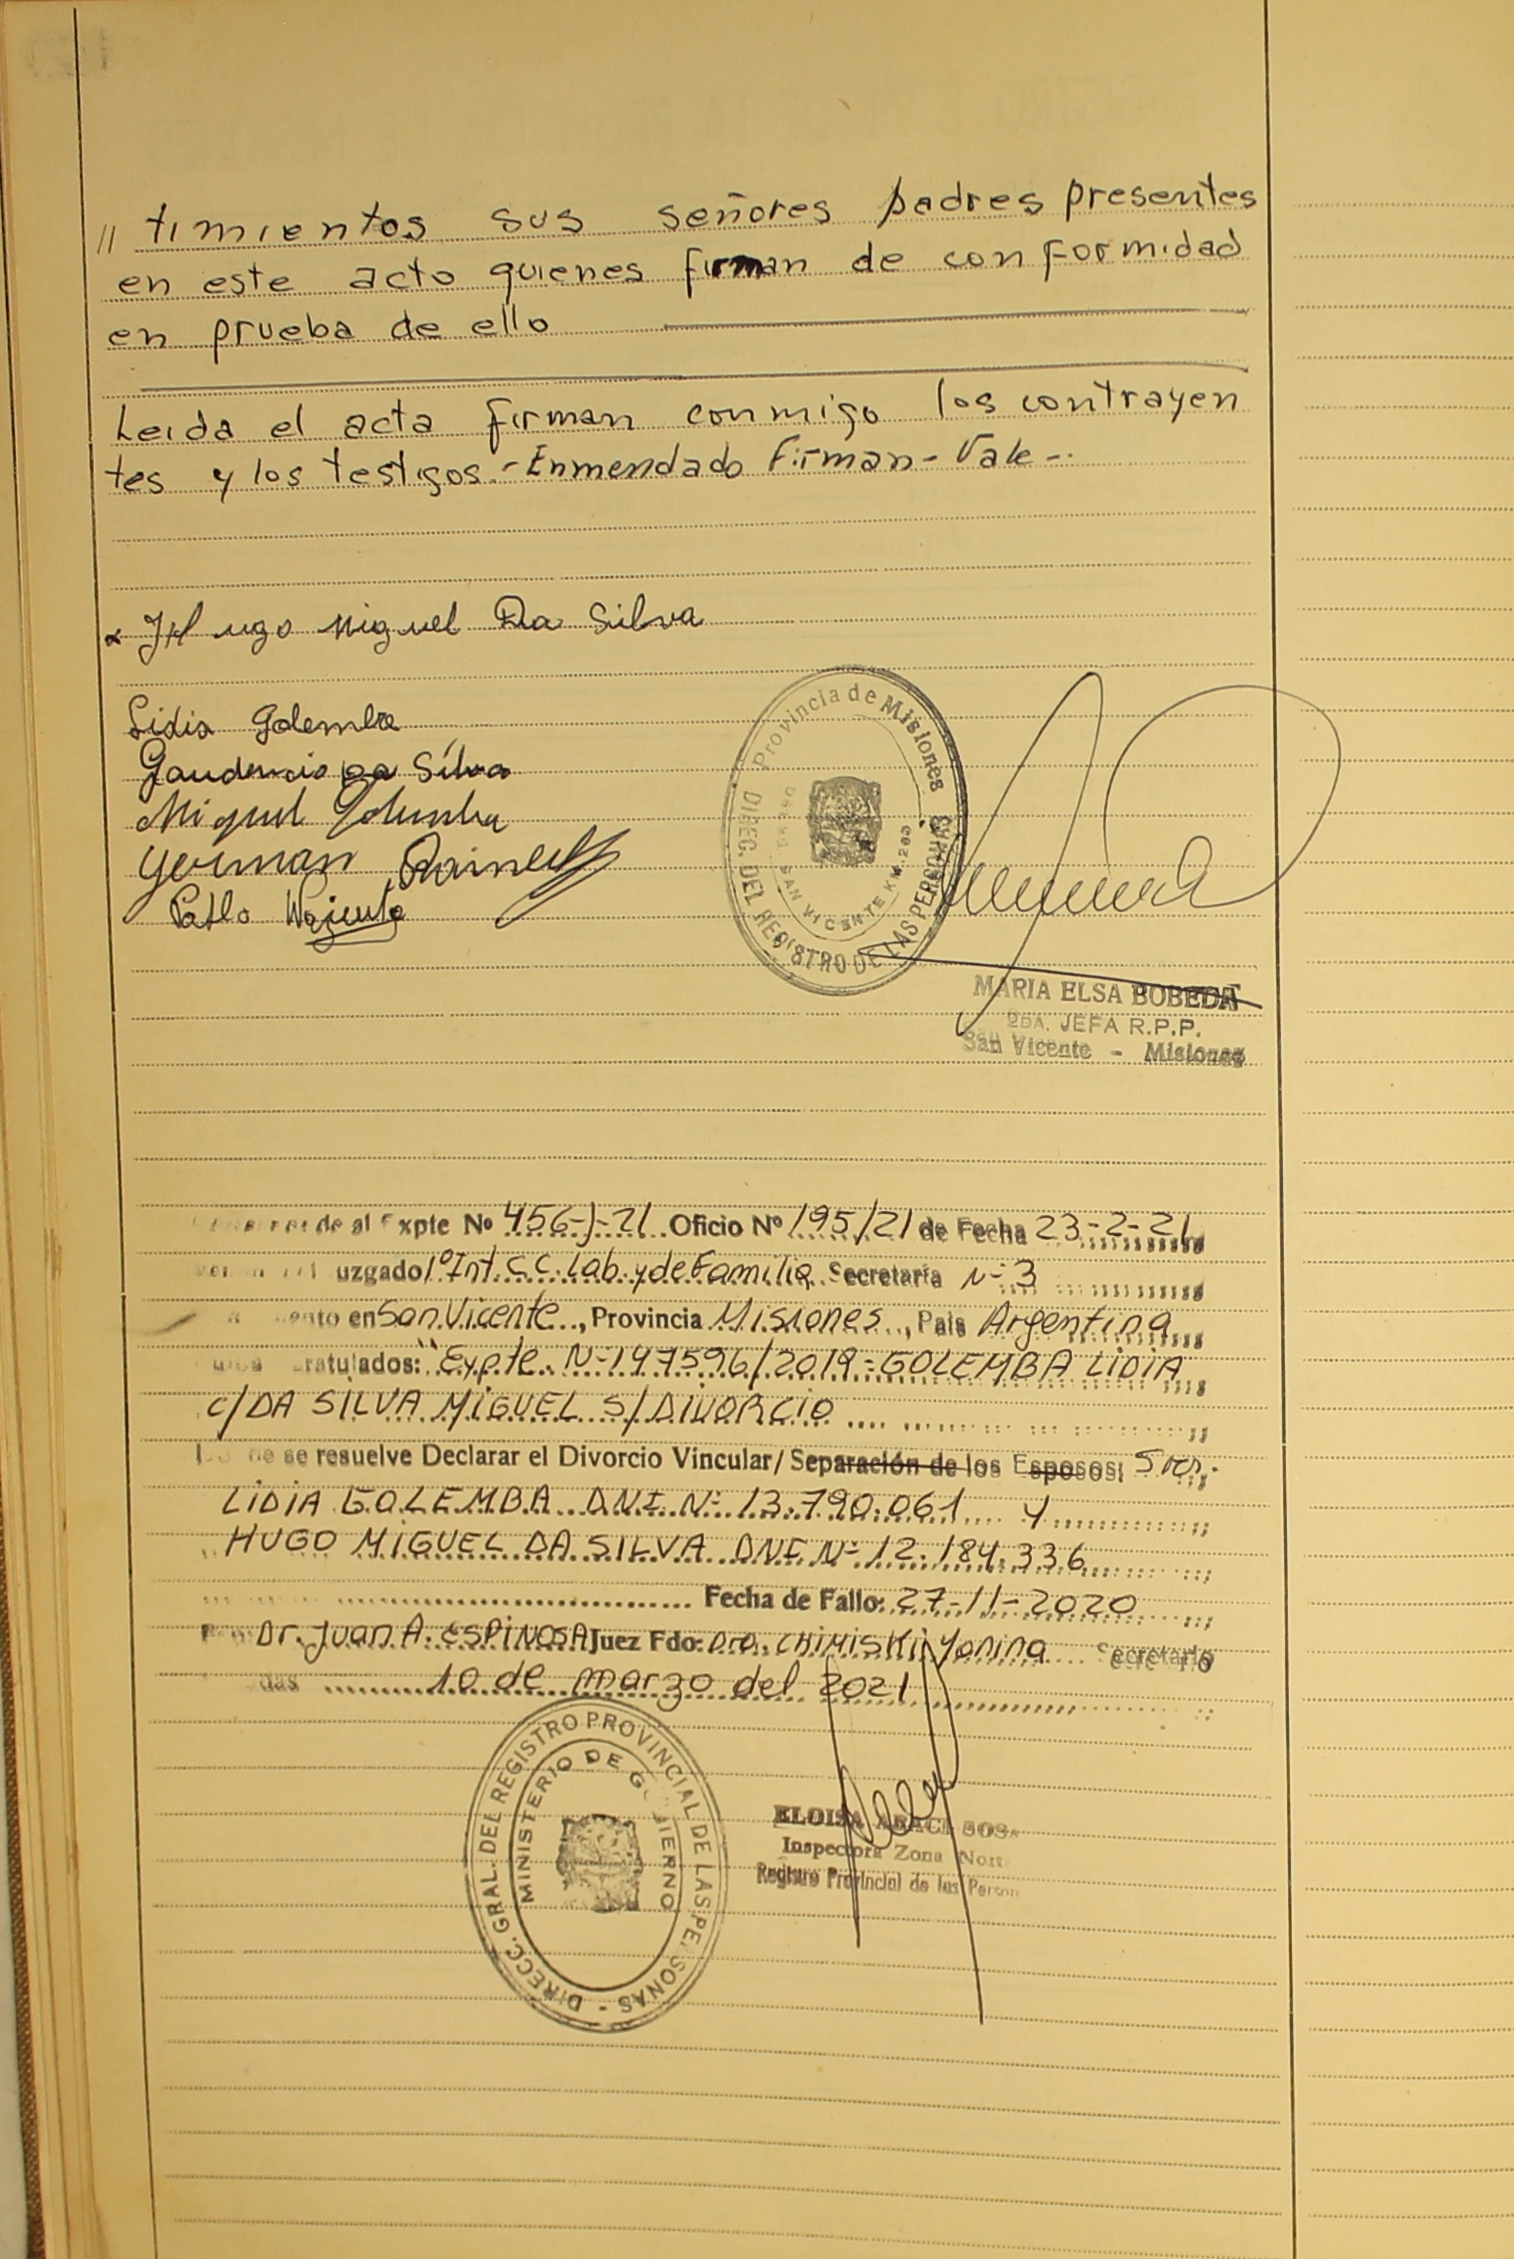 // timientos sus señores padres presentes
en este acto quienes firman de conformidad
en prueba de ello
Leida el acta firman conmigo los contrayen
tes y los testigos.- Enmendado Firman - Vale -.
Hugo Miguel Da Silva
Lidia Golemba
Gaudencio Da Silva
Miguel Golemba
German
Pablo
Provincia de Misiones
DIREC. DEL REGISTRO DE LAS PERSONAS
SAN VICENTE KM. 283
MARIA ELSA BOBEDA
JEFA R.P.P.
San Vicente - Misiones
de al Expte Nº 456-J-21 Oficio Nº 195/21 de Fecha 23-2-21
uzgado 1º Int. C.C. Lab. y de Familia Secretaría Nº 3
ento en San Vicente, Provincia Misiones, Pais Argentina
ratulados: "Expte. Nº 147596/2019 - GOLEMBA LIDIA
c/ DA SILVA MIGUEL S/ DIVORCIO
de se resuelve Declarar el Divorcio Vincular/ Separación de los Esposos; Sres.
LIDIA GOLEMBA DNI Nº 13.790.061 y
HUGO MIGUEL DA SILVA DNI Nº 12.184.336
Fecha de Fallo: 27-11-2020
Dr. Juan A. ESPINOSA Juez Fdo: Dra. CHIMISKI Yanina Secretario
das 10 de marzo del 2021
DIRECC. GRAL. DEL REGISTRO PROVINCIAL DE LAS PERSONAS -
MINISTERIO DE GOBIERNO
ELOISA ARACI SOSA
Inspectora Zona Norte
Registro Provincial de las Person